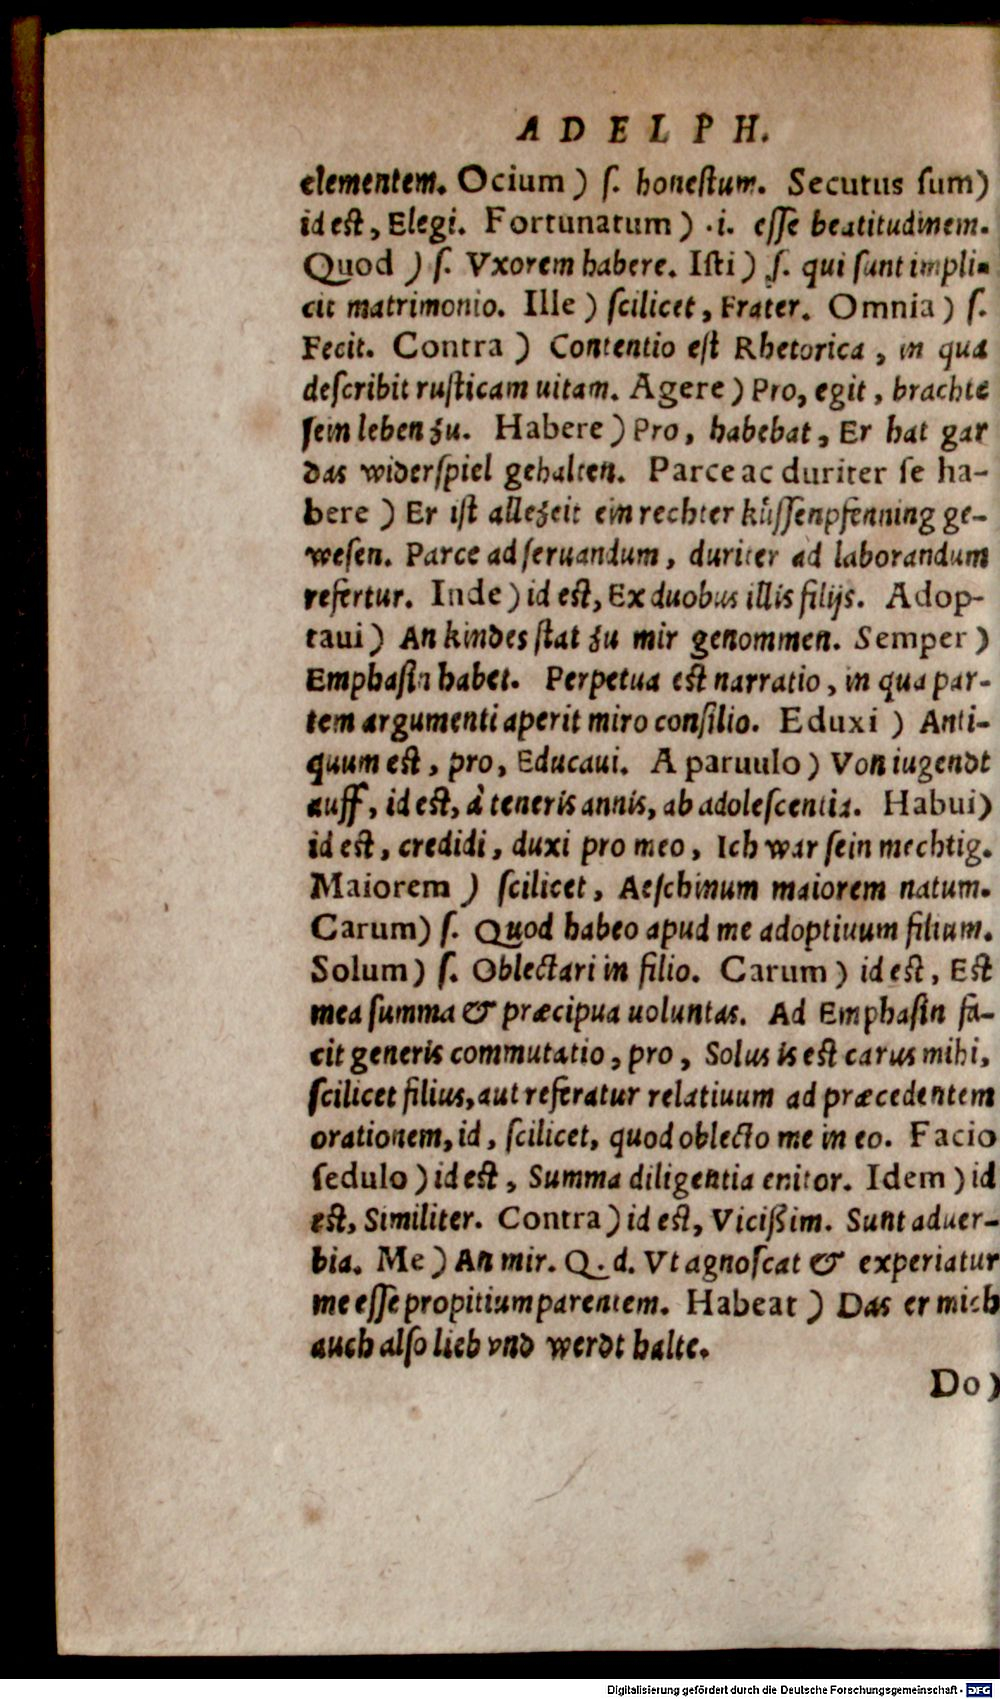 ADELPH.
elementem. Ocium) ſ. honeſtum. Secutus ſum)
id eſt, Elegi. Fortunatum) .i. eſſe beatitudinem.
Quod) ſ. Vxorem habere. Iſti) ſ. qui ſunt impli-
cit matrimonio. Ille) ſcilicet, Frater. Omnia) ſ.
Fecit. Contra) Contentio eſt Rhetorica, in qua
deſcribit ruſticam uitam. Agere) Pro, egit, brachte
ſein leben zu. Habere) Pro, habebat, Er hat gar
das widerſpiel gehalten. Parce ac duriter ſe ha-
bere) Er iſt allezeit ein rechter küſſenpfenning ge-
weſen. Parce ad ſeruandum, duriter ad laborandum
refertur. Inde) id eſt, Ex duobus illis filijs. Adop-
taui) An kindes ſtat zu mir genommen. Semper)
Emphaſin habet. Perpetua eſt narratio, in qua par-
tem argumenti aperit miro conſilio. Eduxi) Anti-
quum eſt, pro, Educaui. A paruulo) Von iugendt
auff, id eſt, à teneris annis, ab adoleſcentia. Habui)
id eſt, credidi, duxi pro meo, Ich war ſein mechtig.
Maiorem) ſcilicet, Aeſchinum maiorem natum.
Carum) ſ. Quod habeo apud me adoptiuum filium.
Solum) ſ. Oblectari in filio. Carum) id eſt, Eſt
mea ſumma & præcipua uoluntas. Ad Emphaſin fa-
cit generis commutatio, pro, Solus is eſt carus mihi,
ſcilicet filius, aut referatur relatiuum ad præcedentem
orationem, id, ſcilicet, quod oblecto me in eo. Facio
ſedulo) id eſt, Summa diligentia enitor. Idem) id
eſt, Similiter. Contra) id eſt, Vicißim. Sunt aduer-
bia. Me) An mir. Q. d. Vt agnoſcat & experiatur
me eſſe propitium parentem. Habeat) Das er mich
auch alſo lieb vnd werdt halte.
Do)
Digitalisierung gefördert durch die Deutsche Forschungsgemeinschaft - DFG